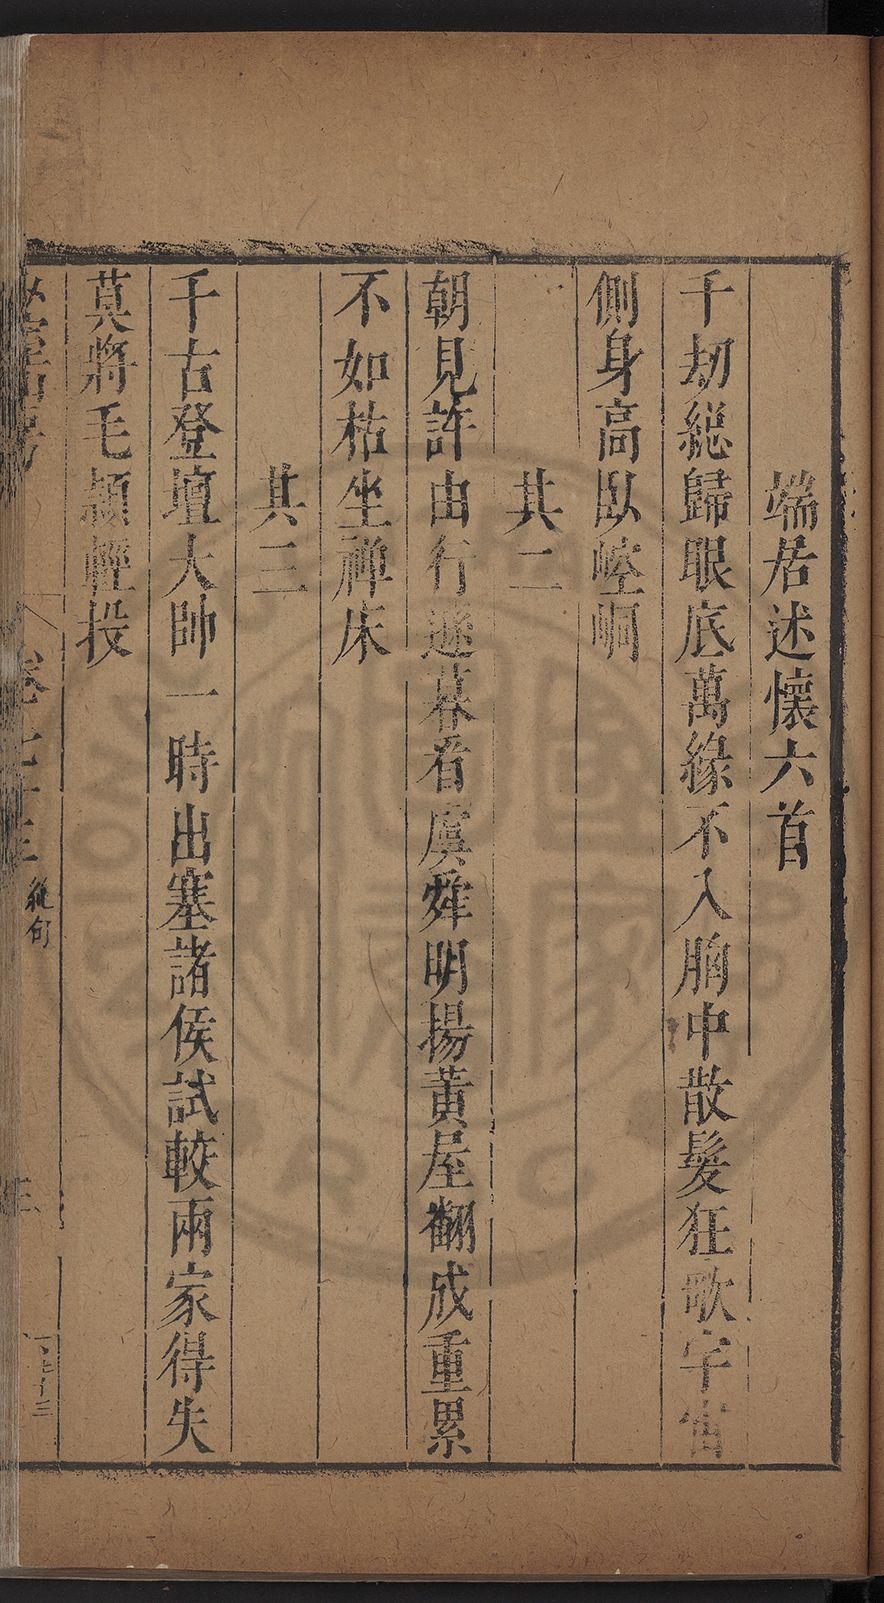 端居述懷六首
千劫緫歸眼底萬緣不入胸中散髮狂歌宇宙
側身高臥崆峒
其二
朝見許由行遯暮看虞舜明揚黃屋翻成重累
不如枯坐禪床
其三
千古登壇大帥一時出塞諸侯試較兩家得失
莫將毛穎輕投
卷七十三
絶句